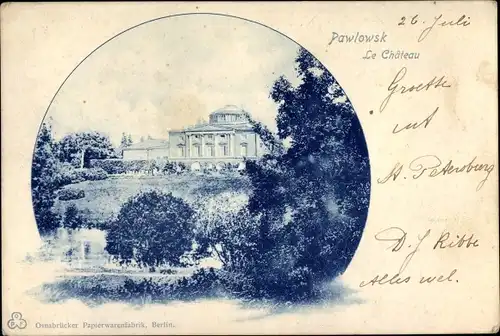 Pawlowsk
Le Château
26 Juli
Groette
uit
St. Petersburg
D. J. Ribbe
Alles wel.
Osnabrücker Papierwarenfabrik, Berlin.